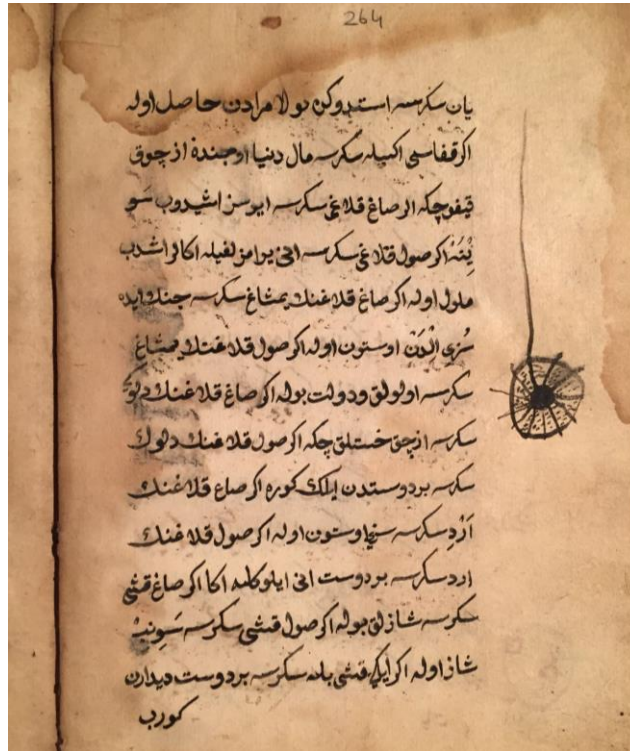 264
يان سكرسه استدوكن بولا مرادن حاصل اوله
اكر قفاسى اكيله سكرسه مال دنيا اوجندۀ از چوق
قيغو چكه اكر صاغ قلاغى سكرسه ايو سز اشيدوب سو
ينه اكر صول قلاغى سكرسه انى يرامز لغيله اكالر اشدب
ملول اوله اكر صاغ قلاغنك يمشاغ سكرسه جنك ايده
اوستون اوله اكر صول قلاغنك يمشاغ
سكرسه اولولق ودولت بوله اكر صاغ قلاغنك دلوكى
سكرسه از چق خستلق چكه اكر صول قلاغنك دلوك
سكرسه بر دوستدن ايلك كوره اكر صاغ قلاغنك
اردِ سكرسه اوستون اوله اكر صول قلاغنك
ارد سكرسه بر دوست انى ايلوكله اكا اكر صاغ قشى
سكرسه شاذلق بوله اكر صول قشى سكرسه سَونب
شاذ اوله اكر ايكى قشى بله سكرسه بر دوست ديدارن
كورب